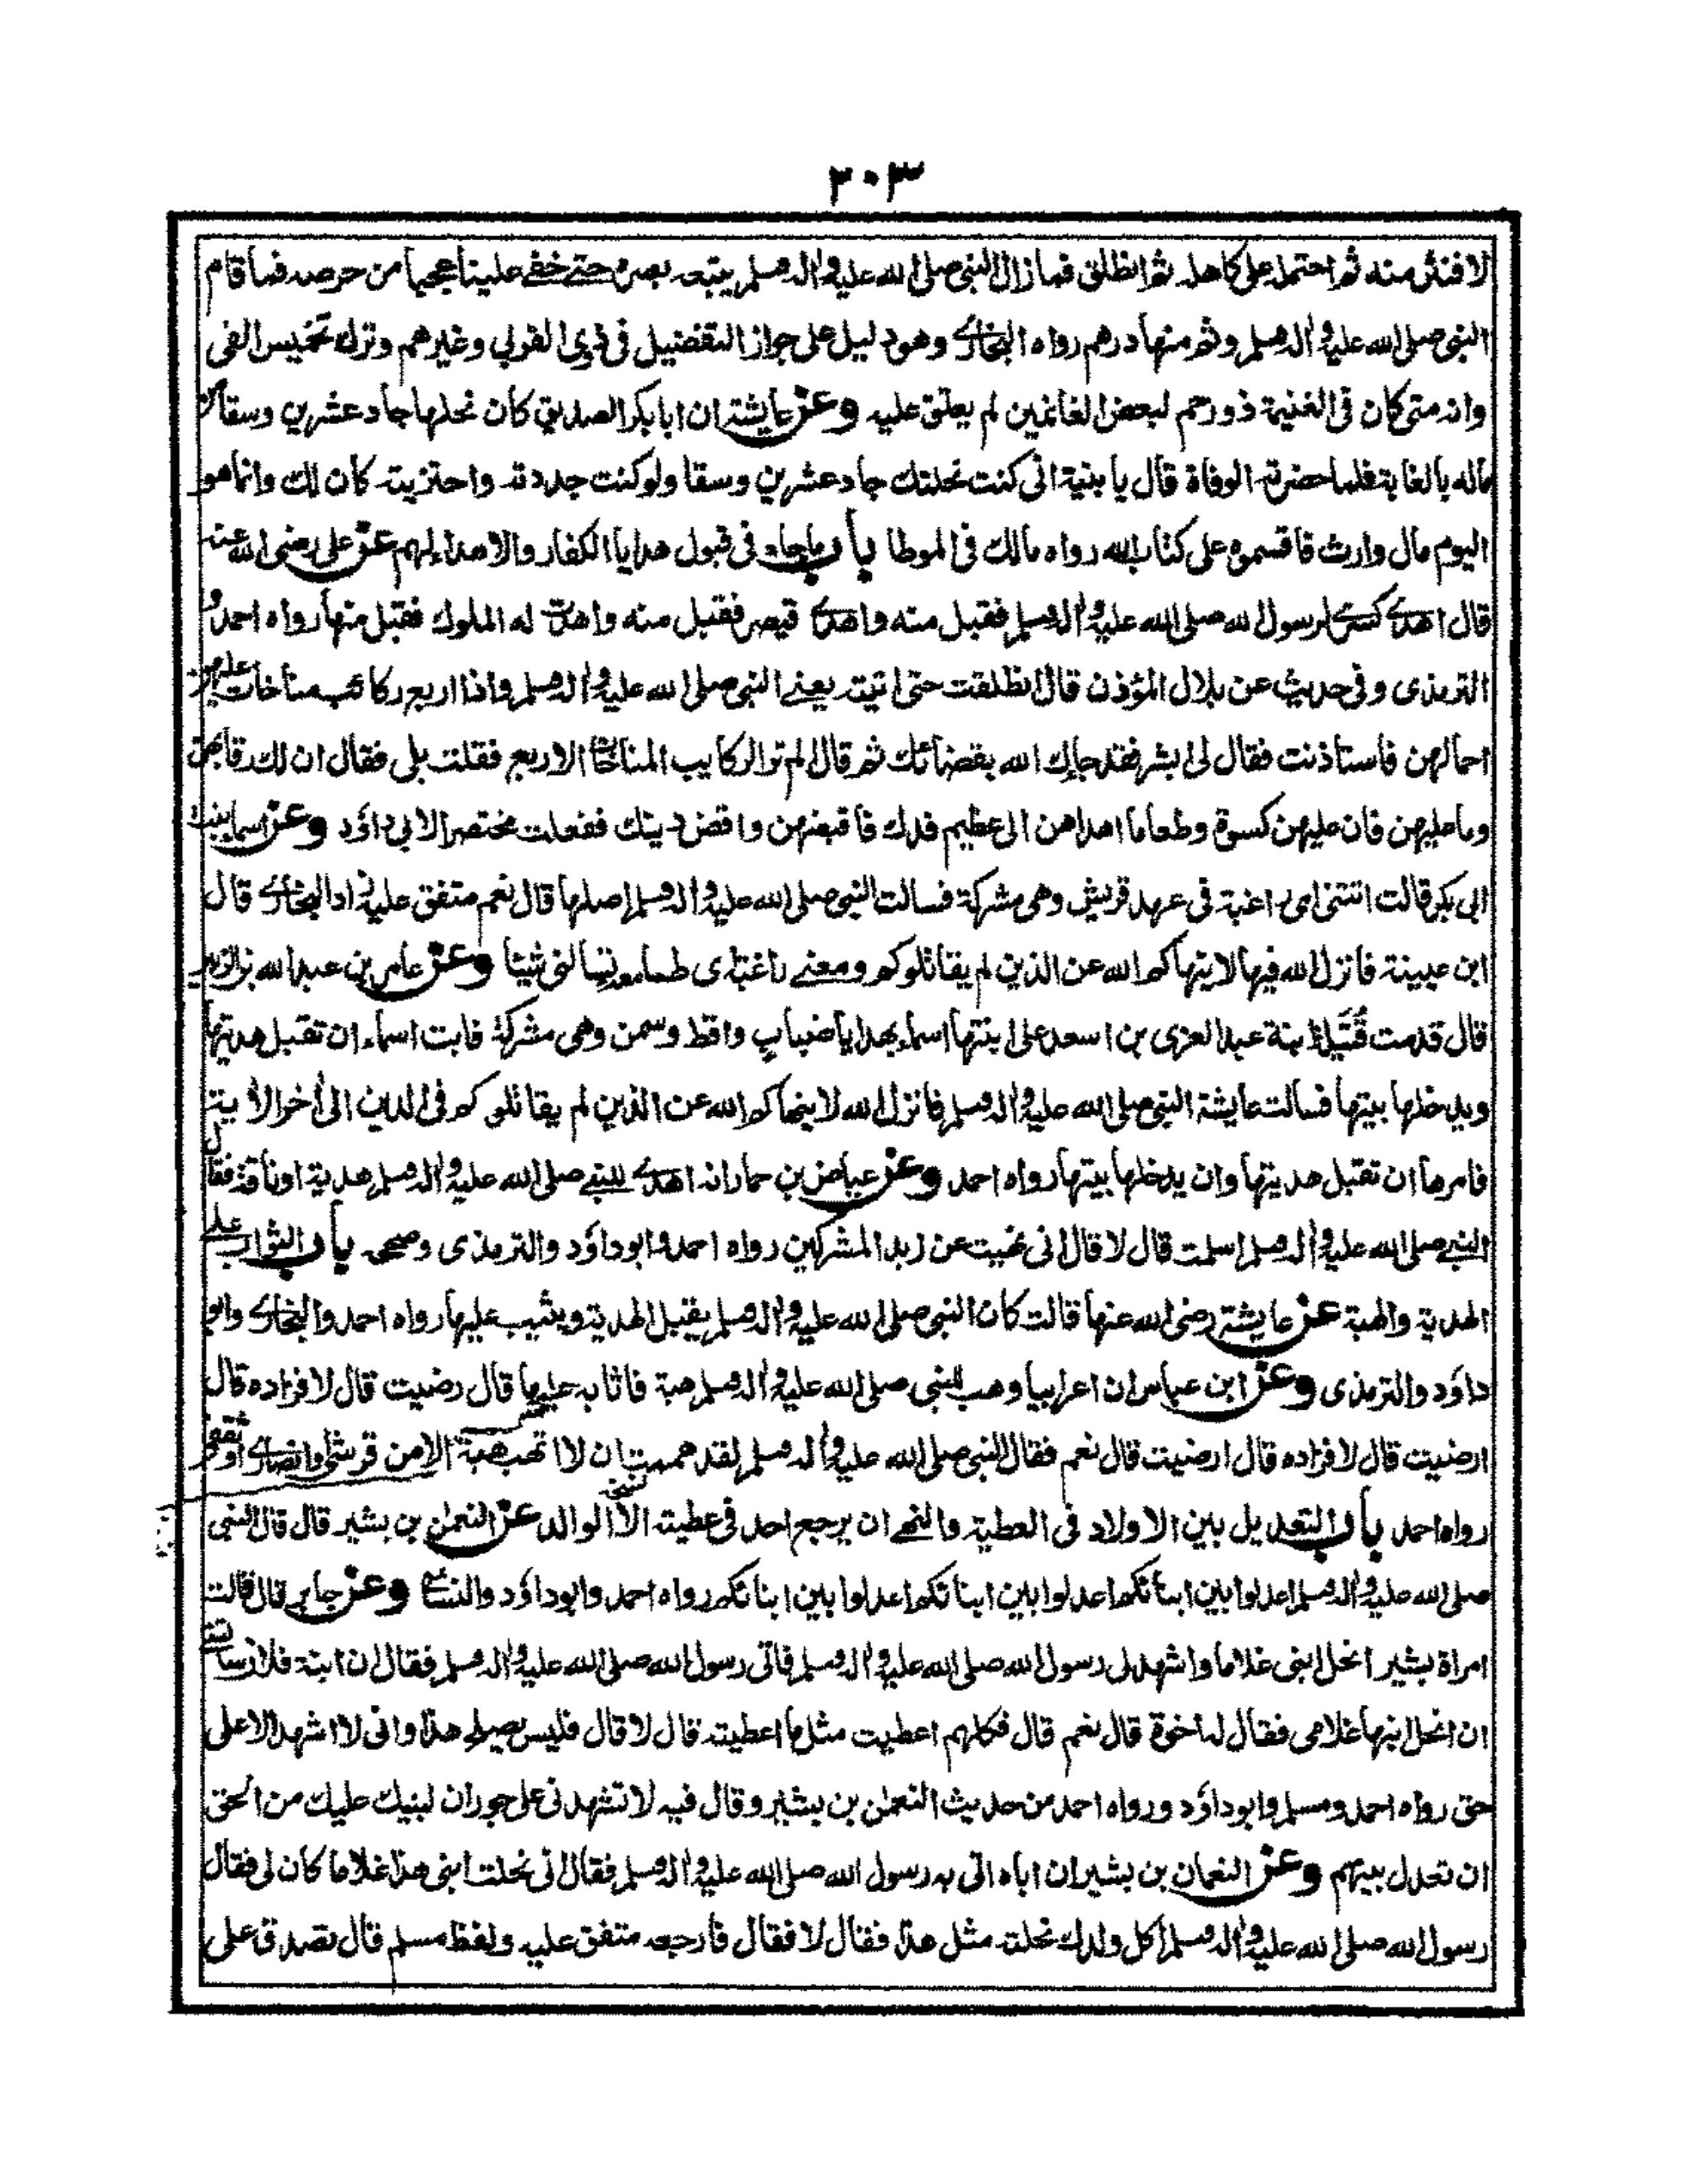 ٣٠٣
لا فنثر منه ثم احتمله على كاهله ثم انطلق فما زال النبي صلى الله عليه واله وسلم يتبعه بصره حتى خفى علينا عجبا من حرصه فما قام
النبي صلى الله عليه واله وسلم وثم منها درهم رواه البخارى وهو دليل على جواز التفضيل فى ذوى القربى وغيرهم وترك تخميس الفى
وانه متى كان فى الغنيمة ذو رحم لبعض الغانمين لم يعتق عليه وعن عايشة ان ابا بكر الصديق كان نحلها جاد عشرين وسقا من
ماله بالغابة فلما حضرته الوفاة قال يا بنية انى كنت نحلتك جاد عشرين وسقا ولو كنت جددته واحتزيته كان لك وانما هو
اليوم مال وارث فاقسموه على كتاب الله رواه مالك فى الموطا باب ماجاء فى قبول هدايا الكفار والاهداء لهم عن على رضى الله عنه
قال اهدى كسرى لرسول الله صلى الله عليه واله وسلم فقبل منه واهدى قيصر فقبل منه واهدت له الملوك فقبل منها رواه احمد و
الترمذى وفى حديث عن بلال المؤذن قال انطلقت حتى اتيته يعنى النبي صلى الله عليه واله وسلم واذا اربع ركائب مناخات عليهن
احمالهن فاستاذنت فقال لى ابشر فقد جاءك الله بقضائك ثم قال الم تر الركايب المناخات الاربع فقلت بلى فقال ان لك رقابهن
وما عليهن فان عليهن كسوة وطعاما اهداهن الى عظيم فدك فاقبضهن واقض دينك ففعلت مختصر الابى داؤد وعن اسما بنت
ابى بكر قالت اتتنى امى راغبة فى عهد قريش وهى مشركة فسالت النبى صلى الله عليه واله وسلم اصلها قال نعم متفق عليه زاد البخارى قال
ابن عيينة فانزل الله فيها لا ينهاكم الله عن الذين لم يقاتلوكم ومعنى راغبة اى طامعة تسالنى شيئا وعن عامر بن عبد الله بن الزبير
قال قدمت قتيلة ابنة عبد العزى بن اسعد على ابنتها اسماء بهدايا ضباب واقط وسمن وهى مشركة فابت اسماء ان تقبل هديتها
ويدخلها بيتها فسالت عايشة النبى صلى الله عليه واله وسلم فانزل الله لا ينهاكم الله عن الذين لم يقاتلوكم فى الدين الى أخر الأية
فامرها ان تقبل هديتها وان يدخلها بيتها رواه احمد وعن عياض بن حمار انه اهدى للنبى صلى الله عليه واله وسلم هدية او ناقة فقال
النبى صلى الله عليه واله وسلم اسلمت قال لا قال انى نهيت عن زبد المشركين رواه احمد وابو داؤد والترمذى وصححه باب الثواب على
الهدية والهبة عن عايشة رضى الله عنها قالت كان النبى صلى الله عليه واله وسلم يقبل الهدية ويثيب عليها رواه احمد والبخارى وابو
داؤد والترمذى وعن ابن عباس ان اعرابيا وهب للنبى صلى الله عليه واله وسلم هبة فاثابه عليها قال رضيت قال لا فزاده قال
ارضيت قال لا فزاده قال ارضيت قال نعم فقال النبى صلى الله عليه واله وسلم لقد هممت ان لا اتهب هبة الا من قرشى او انصارى او ثقفى
رواه احمد باب التعديل بين الاولاد فى العطية والنهى ان يرجع احد فى عطيته الا الوالد عن النعمن بن بشير قال قال النبى
صلى الله عليه واله وسلم اعدلوا بين ابنائكم اعدلوا بين ابنائكم اعدلوا بين ابنائكم رواه احمد وابو داؤد والنسائى وعن جابر قال قالت
امراة بشير انحل ابنى غلاما واشهد لى رسول الله صلى الله عليه واله وسلم فاتى رسول الله صلى الله عليه واله وسلم فقال ان ابنة فلان سالتنى
ان انحل ابنها غلامى فقال له اخوة قال نعم قال فكلهم اعطيت مثل ما اعطيته قال لا قال فليس يصلح هذا وانى لا اشهد الا على
حق رواه احمد ومسلم وابو داؤد ورواه احمد من حديث النعمن بن بشير وقال فيه لا تشهدنى على جور ان لبنيك عليك من الحق
ان تعدل بينهم وعن النعمان بن بشير ان اباه اتى به رسول الله صلى الله عليه واله وسلم فقال انى نحلت ابنى هذا غلاما كان لى فقال
رسول الله صلى الله عليه واله وسلم اكل ولدك نحلته مثل هذا فقال لا فقال فأرجعه متفق عليه ولفظ مسلم قال تصدق على